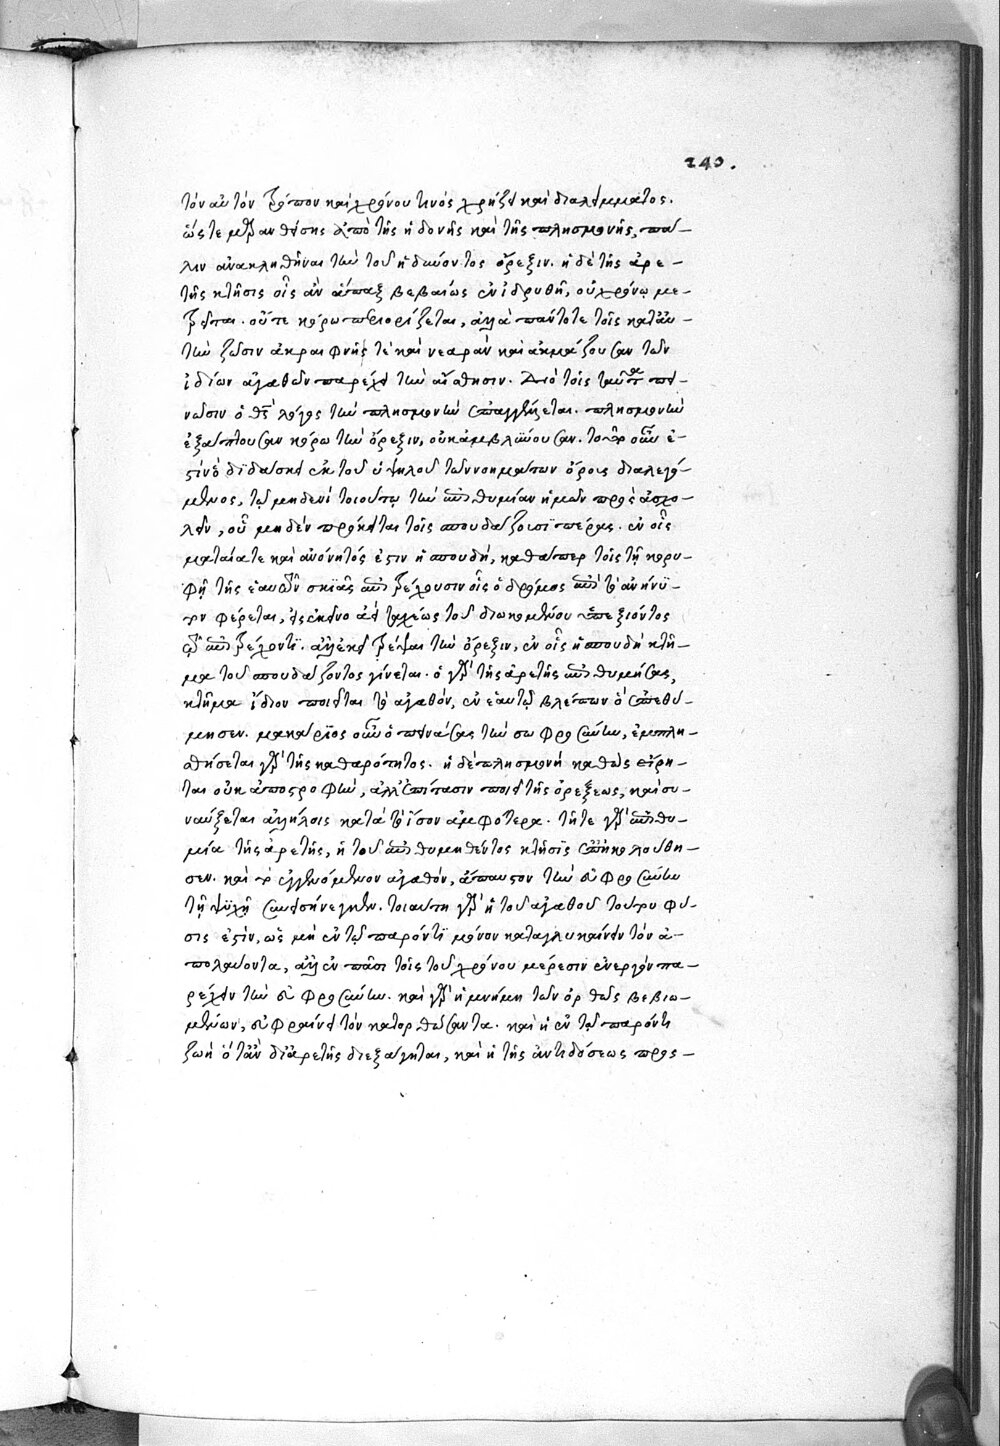 240.
τὸν αὐτὸν τρόπον καὶ χρόνου τινός χρήζει καὶ διαλείμματος.
ὥς τε μεταναθείσης ἀπὸ τῆς ἡδονῆς καὶ τῆς πλησμονῆς, πά-
λιν ἀνακληθῆναι τὴν τοῦ ἡδύοντος ὄρεξιν. ἡ δὲ τῆς ἀρε-
τῆς κτῆσις οἷς ἂν ἅπαξ βεβαίως ἐνιδρυθῇ, οὐ χρόνῳ με-
τρεῖται. οὔτε κόρω περιορίζεται, ἀλλὰ πάντοτε τοῖς κατ' αὐ-
τὴν ζῶσιν ἀκραιφνῆς τὲ καὶ νεαρὰν καὶ ἀκμάζουσαν τῶν
ἰδίων ἀγαθῶν παρέχει τὴν αἴσθησιν. Διὸ τοῖς ταῦτα πει-
νῶσιν ὁ θς λόγος τὴν πλησμονὴν ἐπαγγέλλεται. πλησμονὴν
ἐξάπτουσαν κόρω τὴν ὄρεξιν, οὐκ ἀμβλύνουσαν. τοῦτο οὖν ἐ-
στίν ὃ διδάσκει ἐκ τοῦ ὑψηλοῦ τῶν νοημάτων ὄρους διαλεγό-
μενος, τῷ μηδενὶ τοιούτῳ τὴν ἐπιθυμίαν ἡμῶν πρὸς ἀσχο-
λεῖν, οὗ μηδέν πρόκειται τοῖς σπουδάζουσι πέρας. ἐν οἷς
ματαία τε καὶ ἀνόνητός ἐστιν ἡ σπουδή, καθάπερ τοῖς τῇ κορυ-
φῇ τῆς ἑαυτῶν σκιᾶς ἐπιτρέχουσιν οἷς ὁ δρόμος ἐπὶ τὸ ἀνήνυ-
τον φέρεται, εἰς ἐκεῖνο ἀεὶ ταχέως τοῦ διωκομένου ὑπεξιόντος
τῷ ἐπιτρέχοντι. ἀλλ' ἐκεῖ τρέψαι τὴν ὄρεξιν, ἐν οἷς ἡ σπουδὴ κτῆ-
μα τοῦ σπουδάζοντος γίνεται. ὁ γὰρ τῆς ἀρετῆς ἐπιθυμήσας,
κτῆμα ἴδιον ποιεῖται τὸ ἀγαθόν, ἐν ἑαυτῷ βλέπων ὃ ἐπεθύ-
μησεν. μακάριος οὖν ὁ πεινάσας τὴν σωφροσύνην, ἐμπλη-
σθήσεται γὰρ τῆς καθαρότητος. ἡ δὲ πλησμονὴ καθὼς εἴρη-
ται οὐκ ἀποστροφὴν, ἀλλ' ἐπίτασιν ποιεῖ τῆς ὀρέξεως, καὶ συ-
ναύξεται ἀλλήλοις κατὰ τὸ ἴσον ἀμφότερα. τῇ τε γὰρ ἐπιθυ-
μία τῆς ἀρετῆς, ἡ τοῦ ἐπιθυμηθέντος κτῆσις ἐπηκολούθη-
σεν. καὶ τὸ ἐγγενόμενον ἀγαθόν, ἄπαυστον τὴν εὐφροσύνην
τῇ ψυχῇ συνεισήνεγκεν. τοιαύτη γὰρ ἡ τοῦ ἀγαθοῦ τούτου φύ-
σις ἐστὶν, ὡς μὴ ἐν τῷ παρόντι μόνον καταγλυκαίνειν τὸν ἀ-
πολαύοντα, ἀλλ' ἐν πᾶσι τοῖς τοῦ χρόνου μέρεσιν ἐνεργόν πα-
ρέχειν τὴν εὐφροσύνην. καὶ γὰρ ἡ μνήμη τῶν ὀρθῶς βεβιω-
μένων, εὐφραίνει τὸν κατορθώσαντα. καὶ ἡ ἐν τῷ παρόντι
ζωή ὅταν δι' ἀρετῆς διεξάγηται, καὶ ἡ τῆς ἀντιδόσεως προς-